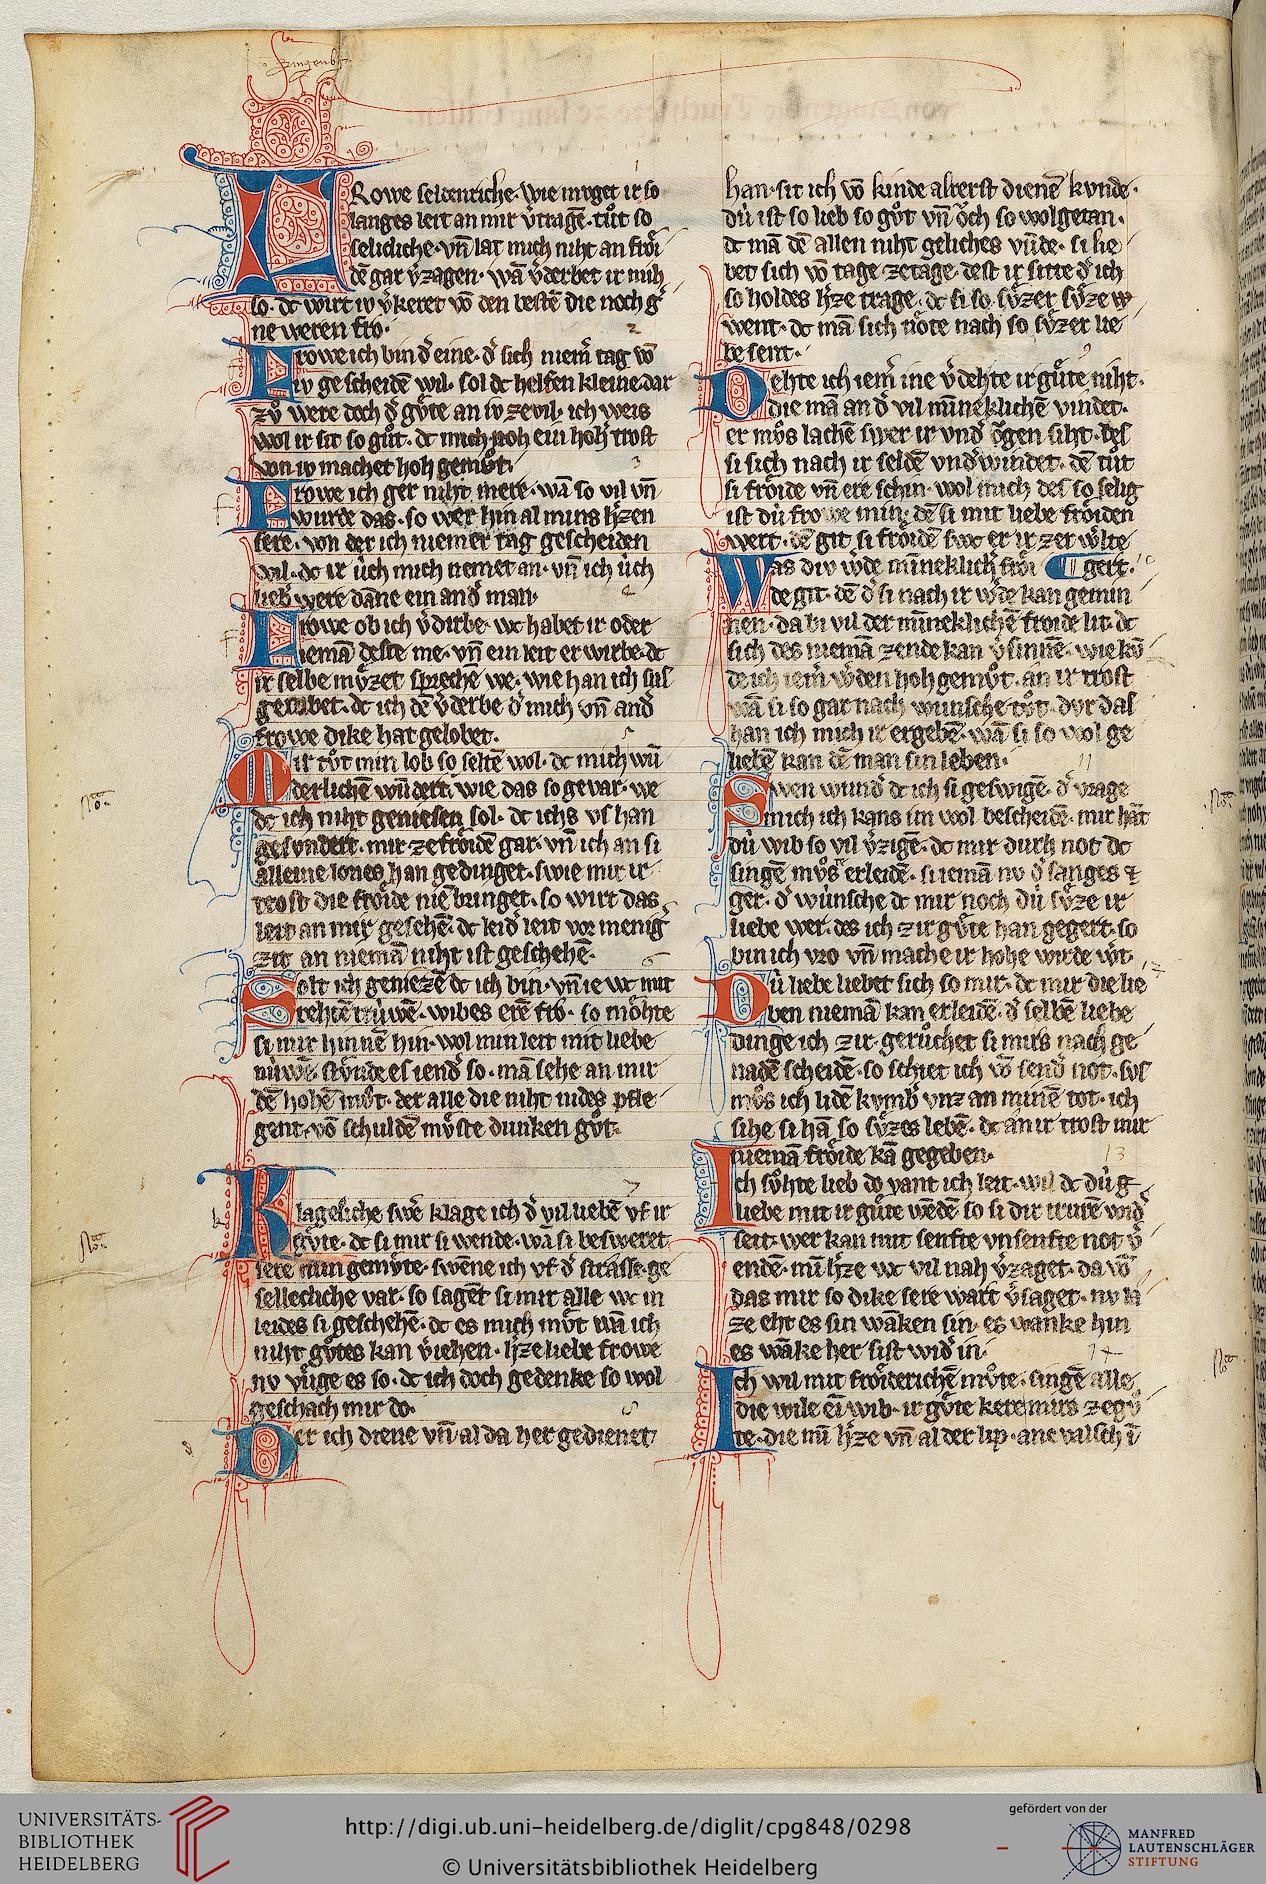 singenb͛g
1
FRowe seldenriche· wie muget ir so
langes leit an mir v͛tragē· tuͦt so
selicliche· vn̄ lat mich niht an froͤi
dē gar v͛zagen· wā v͛derbet ir mih
so· dc wirt iv v͛keret vō den bestē die noch g͛
ne weren fro·
2
Frowe ich bin d͛ eine· d͛ sich niem͛ tag vō
iv gescheidē wil· sol dc helfen kleine dar
zvͦ were doch d͛ gvͤte an iv zevil· ich weis
wol ir sit so guͦt· dc mich noh ein hoh͛ trost
von iv machet hoh gemvͦt·
3
Frowe ich ger niht mere· wā so vil vn̄
wurde das· so wer hin al mins h͛zen
sere· von der ich niemer tag gescheiden
wil· dc ir úch mich nemet an· vn̄ ich úch
lieb͛ were dāne ein and͛ man·
4
Frowe ob ich v͛dirbe· wc habet ir oder
iemā deste me· vn̄ ein leit erwirbe· dc
ir selbe mvͤzet sprechē we· wie han ich sus
getobet· dc ich dē v͛derbe d͛ mich vn̄ and͛
frowe dike hat gelobet·
5
Mir tvͦt min lob so seltē wol· dc mich wū
derlichē wūdert· wie das so gevar· we
dc ich niht geniesen sol· dc ichs vs han
gesvndert· mir zefroͤidē gar· vn̄ ich an si
alleine lones han gedinget· swie mir ir
trost die froͤide niē bringet· so wirt das
leit an mir gesehē· dc leid͛ leit vor menig͛
zit an niemā niht ist geschehē·
6
Solt ich geniezē dc ich bin· vn̄ ie wc mit
rehtē trúwē· wibes erē fro· so moͤhte
si mir hinnē hin· wol min leit mit liebe
núwē· stvͤnde es iend͛ so· mā sehe an mir
dē hohē mvͦt· der alle die niht nides pfle
gent· vō schuldē mvͤste dunken gvͦt·
7
Klageliche swe͛ klage ich d͛ vil liebē vf ir
gvͤte· dc si mir si wende· wā si besweret
sere min gemvͤte· swēne ich vf d͛ strasse ge
sellecliche var· so sagēt si mir alle wc in
leides si geschehē· dc es mich mvͤt wā ich
niht gvͦtes kan v͛iehen· h͛ze liebe frowe
nv vuͤge es so· dc ich doch gedenke so wol
geschach mir do·
8
Der ich diene vn̄ al da her gedienet
han· sit ich vō kinde alrerst dienē kvnde·
dú ist so lieb so gvͦt vn̄ oͮch so wolgetan·
dc mā dē allen niht geliches vúde· si lie
bet sich vō tage zetage· dest ir sitte d͛ ich
so holdes h͛ze trage· dc si so svͤzer svͤze w
went· dc mā sich noͤte nach so svͤzer lie
be sent·
9
Dehte ich iem͛ me v͛dehte ir guͤte niht·
die mā an d͛ vil mīneklichē vindet·
er mvͦs lachē swer ir vnd͛ oͮgen siht· des
si sich nach ir seldē vnd͛windet· dē tuͦt
si froͤide vn̄ ere schin· wol mich des so selig
ist dú frowe min· dē si mit liebe froͤiden
wert· dē git si froͤide swc er ir zer w͛lte
gert·
10
Was div w͛de mīneklich͛ froͤi
de git· dē d͛ si nach ir w͛de kan gemin
nen· da bi vil der mīneklichē froͤide lit· dc
sich des niemā zende kan v͛sinnē· wie kō
de ich iem͛ w͛den hohgemvͦt· an ir trost
wā si so gar nach wunsche tvͦt· dvr das
han ich mich ir ergebē· wā si so wol ge
liebē kan dē man sin leben·
11
Swen wund͛ dc ich si geswigē· d͛ vrage
mich ich kans im wol bescheidē· mir hat
dú wib so vil v͛zigē· dc mir durh not dc
singē mvͦs erleidē· si iemā nv d͛ sanges
ger· d͛ wúnsche dc mir noch dú svͤze ir
liebe wer· des ich zir gvͤte han gegert· so
bin ich vro vn̄ mache ir hohe wirde w͛t·
12
Dú liebe liebet sich so mir· dc mir die lie
ben niemā kan erleidē· d͛ selbē liebe
dinge ich zir· geruͦchet si mirs nach ge
nadē scheidē· so schiet ich vō send͛ not· svs
mvͦs ich lidē kvmb͛ vnz an minē tot· ich
sihe si hā so svͤzes lebē· dc an ir trost mir
niemā froͤide kā gegeben·
13
Ich svͦhte lieb do vant ich leit· wil dc dú g
liebe mit ir guͤte wēdē so si dir trurē wid͛
seit· wer kan mit senfte vnsenfte not v͛
endē· mī h͛ze wc vil nah v͛zaget· da vō
das mir so dike sere wart v͛saget· nv la
ze eht es sin wāken sin· es wanke hin
es wāke her sist wid͛ in·
14
Ich wil mit froͤiderichē mvͦte· singē alle
die wile ein wib· ir gvͤte kere mirs zegvͦ
te· die mī h͛ze vn̄ al der lip· ane valsch ī
UNIVERSITÄTS-
BIBLIOTHEK
HEIDELBERG
http://digi.ub.uni-heidelberg.de/diglit/cpg848/0298
© Universitätsbibliothek Heidelberg
gefördert von der
MANFRED
LAUTENSCHLÄGER
STIFTUNG